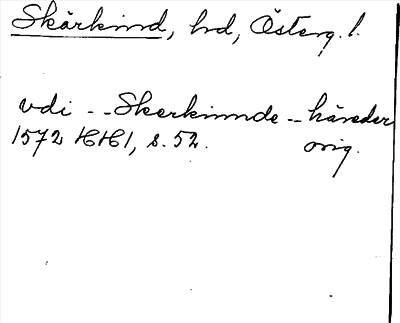 Skärkind, hd, Österg. l.
vdi - - Skerkinnde - - häreder
1572 HH1, s. 52. orig.